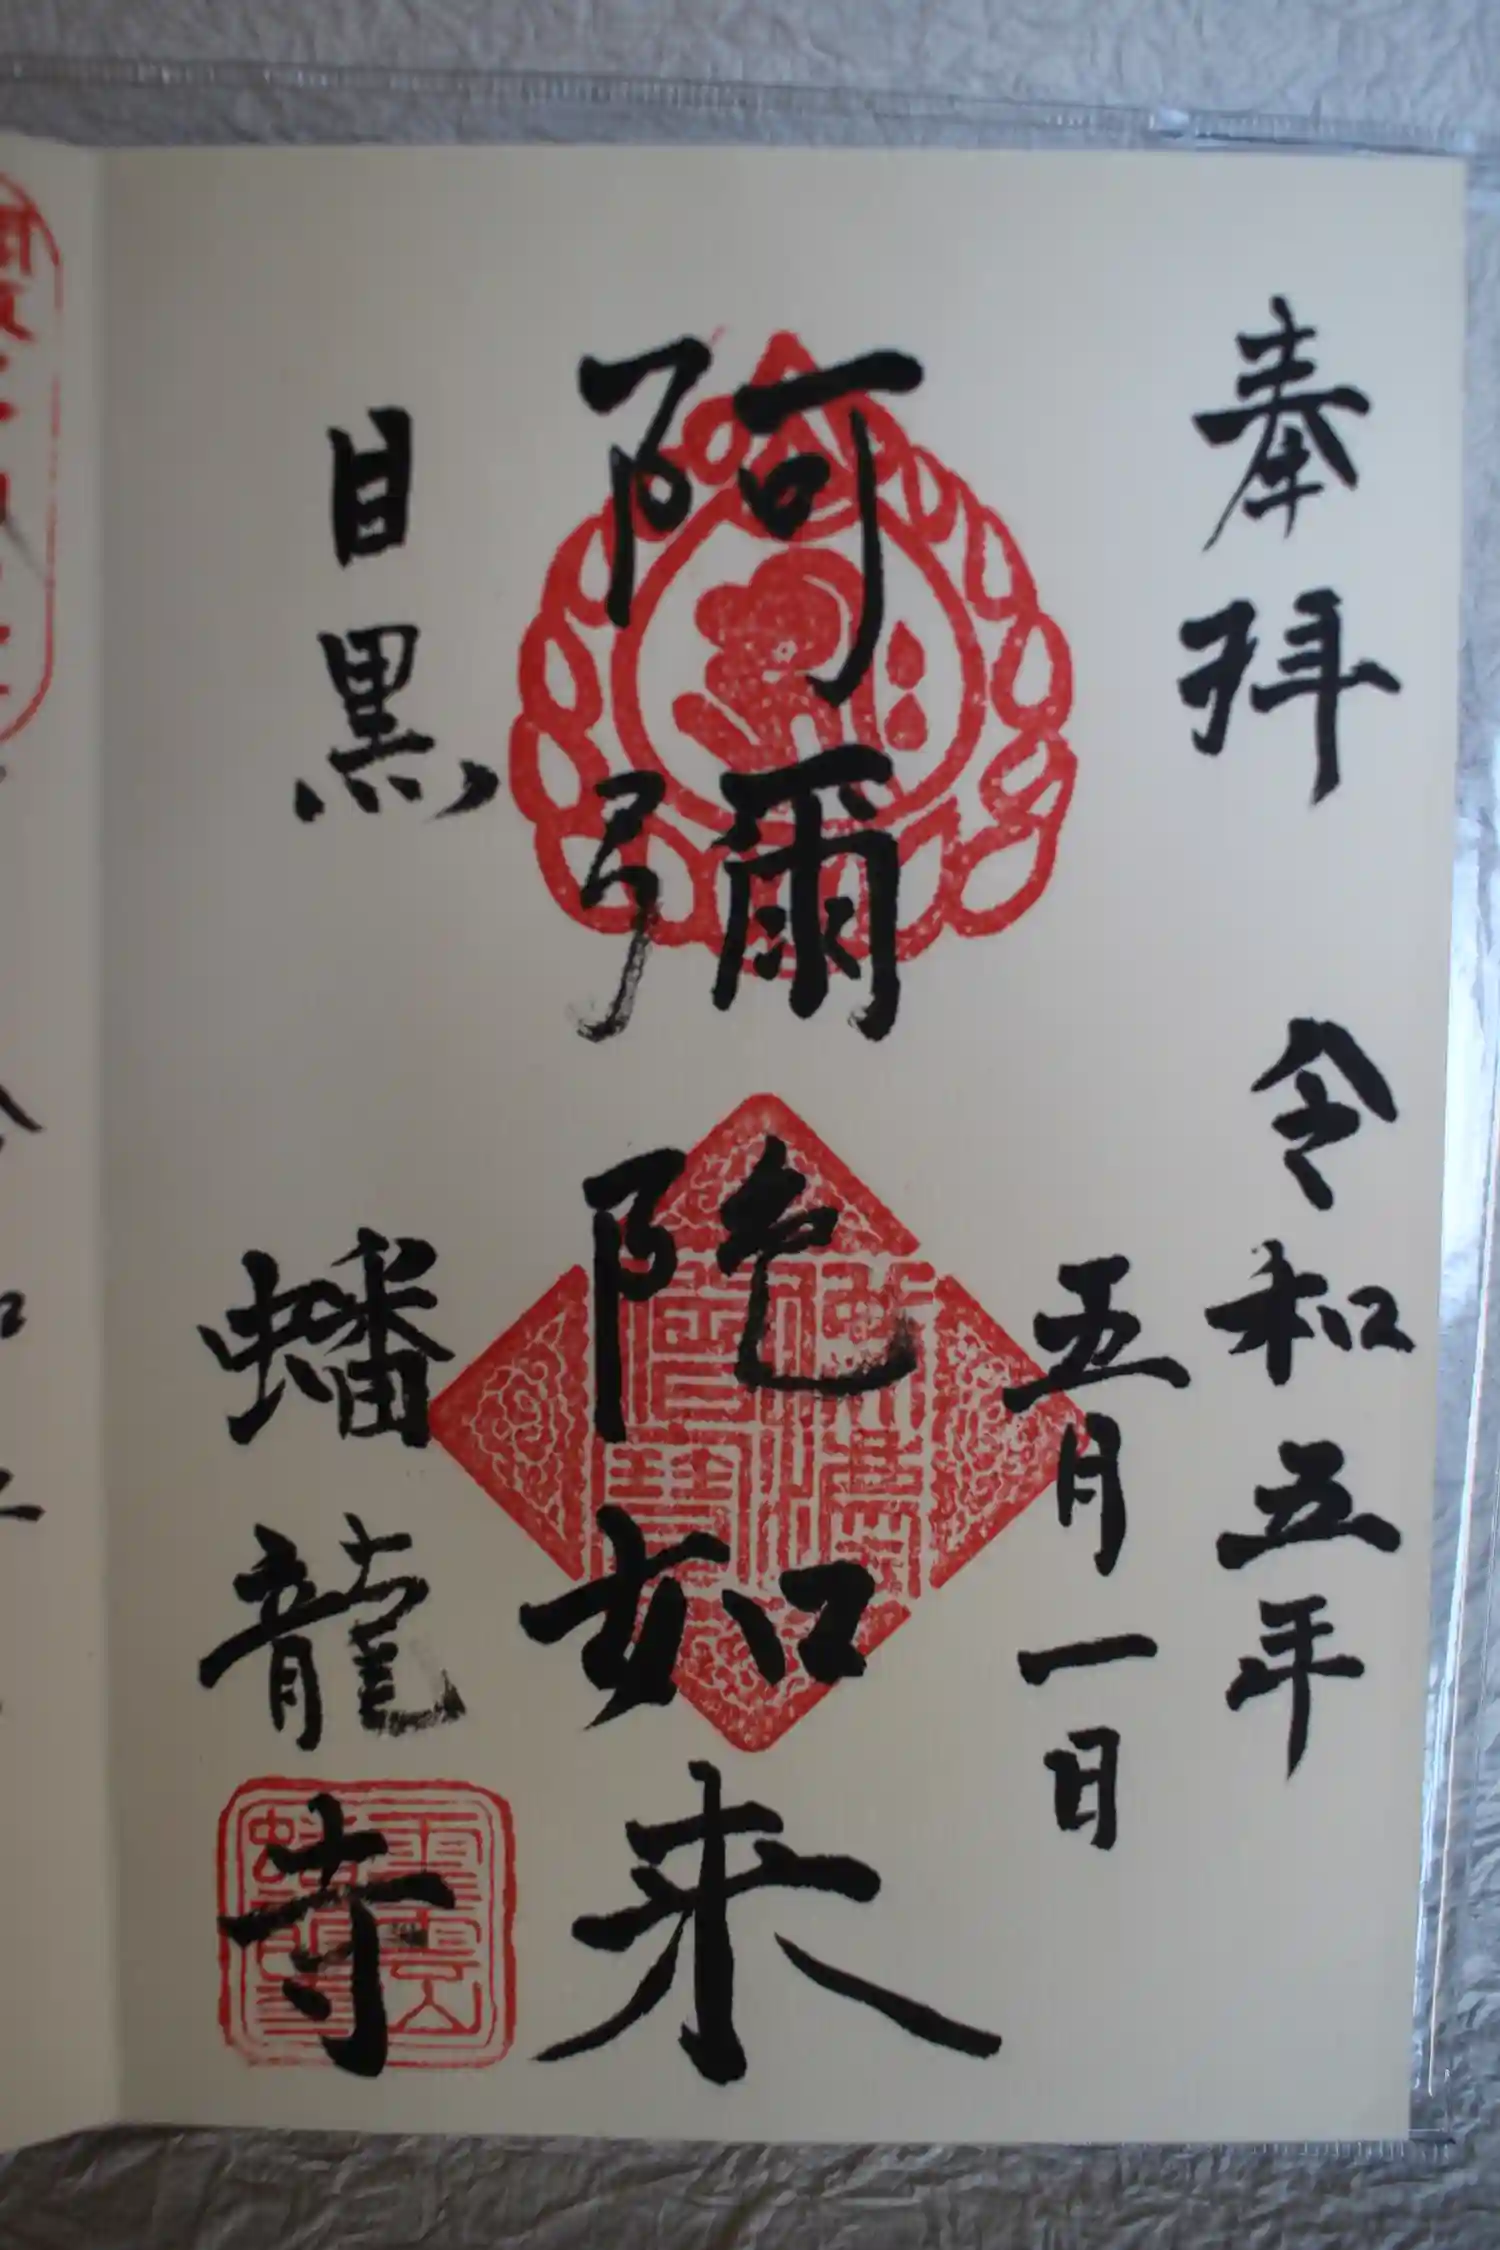 奉拝
令和五年
五月一日
阿彌陀如来
目黒
蟠龍寺